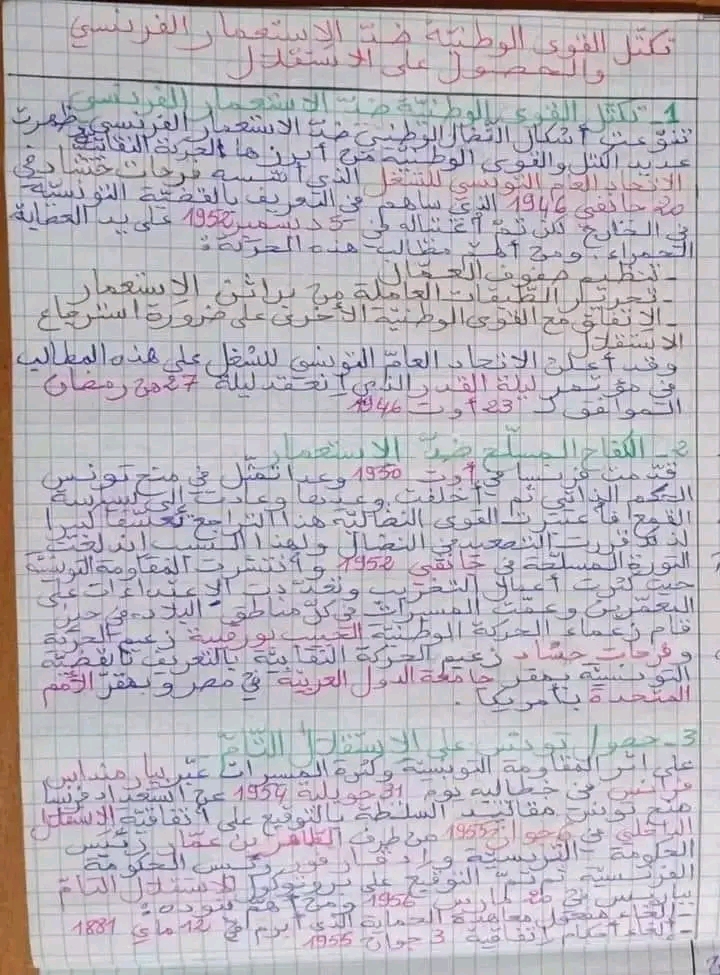 تكتّل القوى الوطنيّة ضدّ الاستعمار الفرنسي
والحصول على الاستقلال
1 - تكتّل القوى الوطنيّة ضدّ الاستعمار الفرنسي
تنوّعت أشكال النّضال الوطني ضدّ الاستعمار الفرنسي، ظهرت
عديد الكتل والقوى الوطنيّة من أبرزها الحركة النقابيّة
الاتحاد العام التونسي للشغل الذي أسّسه فرحات حشّاد في
20 جانفي 1946 الذي ساهم في التعريف بالقضيّة التونسيّة
في الخارج لكن تمّ اغتياله في 5 ديسمبر 1952 على يد العصابة
الحمراء. ومن أهمّ مطالب هذه الحركة:
- تنظيم صفوف العمّال
- تحرير الطّبقات العاملة من براثن الاستعمار
- الاتفاق مع القوى الوطنيّة الأخرى على ضرورة استرجاع
الاستقلال
وقد أعلن الاتحاد العامّ التونسي للشغل على هذه المطالب
في مؤتمر ليلة القدر الذي انعقد ليلة 27 من رمضان
الموافق لـ 23 أوت 1946
2 - الكفاح المسلّح ضدّ الاستعمار
قدّمت فرنسا في أوت 1950 وعدا تمثّل في منح تونس
الحكم الذاتي ثم أخلفت وعدها وعادت إلى سياسة
القمع فاعتبرت القوى النضاليّة هذا التراجع تعسّفا كبيرا
لذلك قررت التصعيد في النضال ولهذا السبب اندلعت
الثورة المسلّحة في جانفي 1952 وانتشرت المقاومة التونسيّة
حيث كثرت أعمال التخريب وتعدّدت الاعتداءات على
المعمّرين وعمّت المسيرات في كلّ مناطق البلاد في حين
قام زعماء الحركة الوطنيّة الحبيب بورقيبة زعيم الحركة
وفرحات حشّاد زعيم الحركة النقابيّة بالتعريف بالقضيّة
التونسيّة بمقر جامعة الدول العربيّة في مصر وبمقرّ الأمم
المتحدة بأمريكا.
3 - حصول تونس على الاستقلال التّامّ
على اثر المقاومة التونسيّة وكثرة المسيرات عبّر بيار منداس
فرانس في خطابه يوم 31 جويلية 1954 عن استعداد فرنسا
منح تونس مقاليد السلطة بالتوقيع على اتفاقية الاستقلال
الداخلي في 3 جوان 1955 من طرف الطاهر بن عمّار رئيس
الحكومة التونسيّة وإدغار فور رئيس الحكومة
الفرنسيّة ثم تمّ التوقيع على بروتوكول الاستقلال التامّ
بباريس في 20 مارس 1956 ومن أهمّ بنوده:
- إلغاء مفعول معاهدة الحماية الذي أبرم في 12 ماي 1881
- إلغاء أحكام اتفاقية 3 جوان 1955